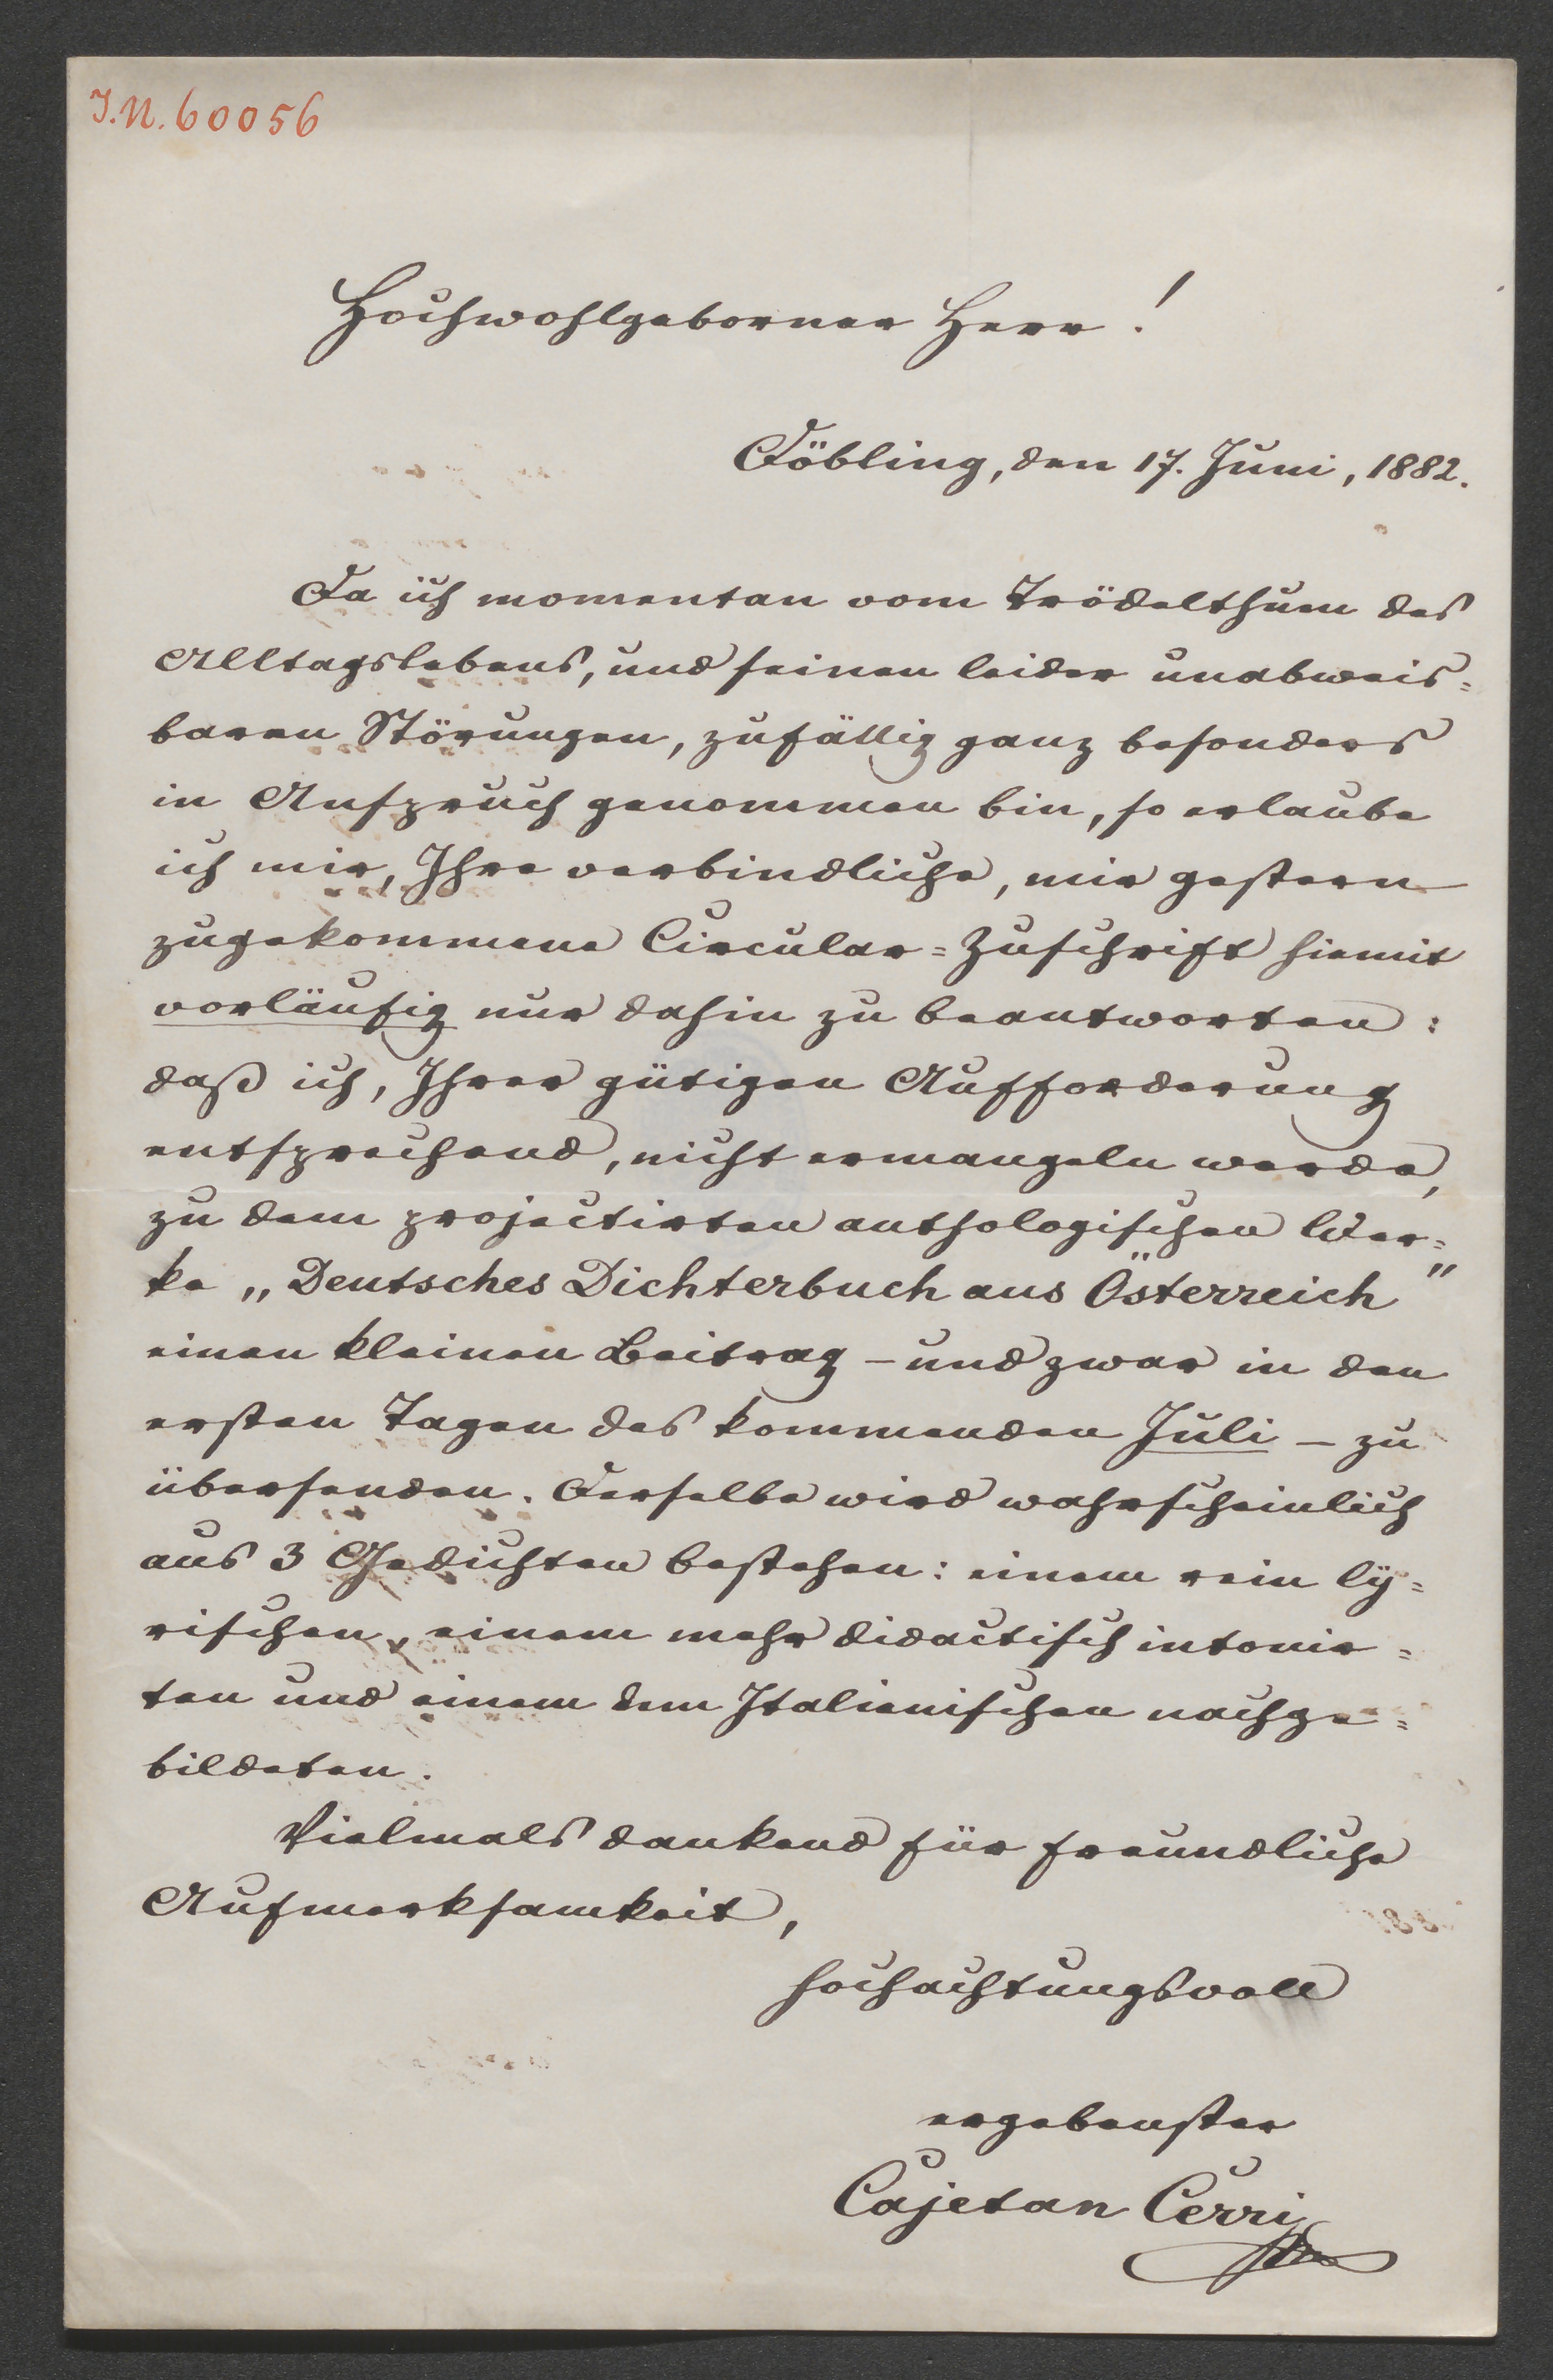 J.N. 60056
Hochwohlgeborner Herr!
Döbling, den 17. Juni, 1882.
Da ich momentan vom Trödelthum des
Alltagslebens, und seinen leider unabweis=
baren Störungen, zufällig ganz besonders
in Anspruch genommen bin, so erlaube
ich mir, Ihre verbindliche, mir gestern
zugekommene Circular=Zuschrift hiemit
vorläufig nur dahin zu beantworten:
daß ich, Ihrer gütigen Aufforderung
entsprechend, nicht ermangeln werde,
zu dem projectirten anthologischen Wer=
ke „Deutsches Dichterbuch aus Österreich"
einen kleinen Beitrag – und zwar in den
ersten Tagen des kommenden Juli – zu
übersenden. Derselbe wird wahrscheinlich
aus 3 Gedichten bestehen: einem rein ly=
rischen, einem mehr didactisch intonir=
ten und einem dem Italienischen nachge=
bildeten.
Vielmals dankend für freundliche
Aufmerksamkeit,
hochachtungsvoll
ergebenster
Cajetan Cerri